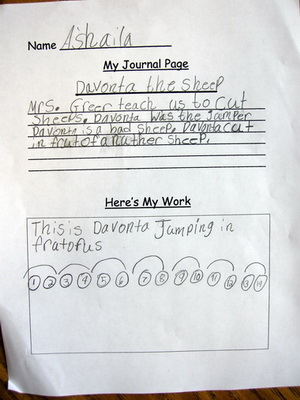 Name Ashaila
My Journal Page
Davonta the Sheep
Mrs. Greer teach us to cut
Sheeps. Davonta was the jumper
Davonta is a bad sheep. Davonta cut
in frut of a nuther sheep.
Here's My Work
This is Davonta Jumping in
fratofus
1 2 3 4 5 6 7 8 9 10 11 12 13 14